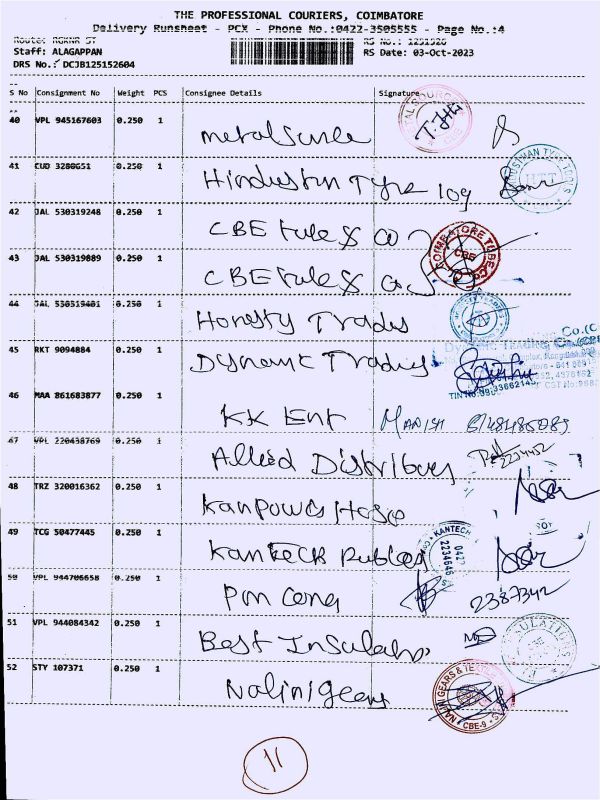 THE PROFESSIONAL COURIERS, COIMBATORE
Delivery Runsheet - PCX - Phone No.:0422-3505555 - Page No.:4
Staff: ALAGAPPAN
RS Date: 03-Oct-2023
DRS No.: DCJB125152604
S No Consignment No Weight PCS Consignee Details Signature
40 VPL 945167603 0.250 1
41 CUD 3280651 0.250 1 Hindustan Tyre
42 JAL 530319248 0.250 1 CBE Tube & Co
43 JAL 530319089 0.250 1 CBE Tube & Co
44 JAL 530319401 0.250 1 Honesty Trades
45 RKT 9094884 0.250 1 Dynamic Trading
46 MAA 861683877 0.250 1 KK Ent MANISH
47 VPL 220438769 0.250 1 Allied Distributors
48 TRZ 320016362 0.250 1
49 TCG 50477445 0.250 1 Kanteck Rubber KANTECH
50 VPL 944706658 0.250 1 2387342
51 VPL 944084342 0.250 1 Best Insulation
52 STY 107371 0.250 1 Nalini gears
NALINI GEARS & CBE-9
11